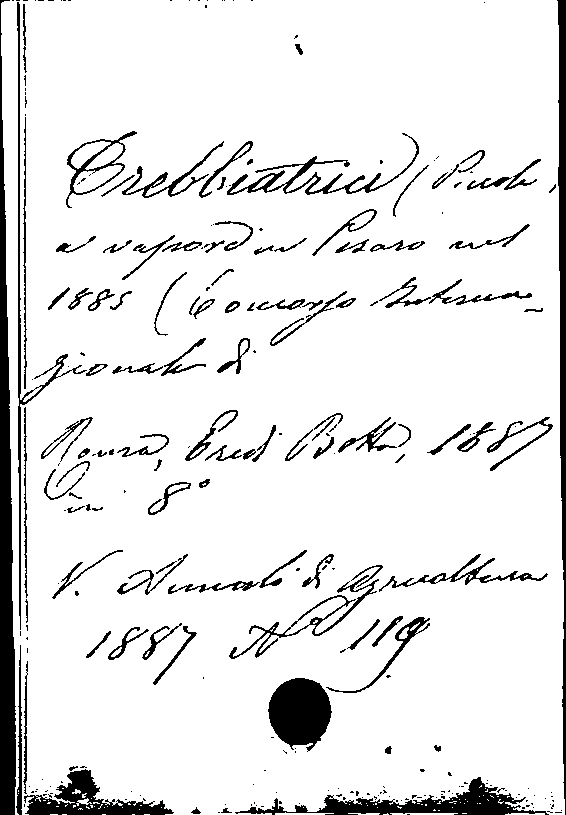 Trebbiatrici (Piccole
a vapore in Pesaro nel
1885 (Concorso Interna-
zionale di
Roma, Eredi Botta, 1887
in 8°
V. Annali di Agricoltura
1887 N° 119